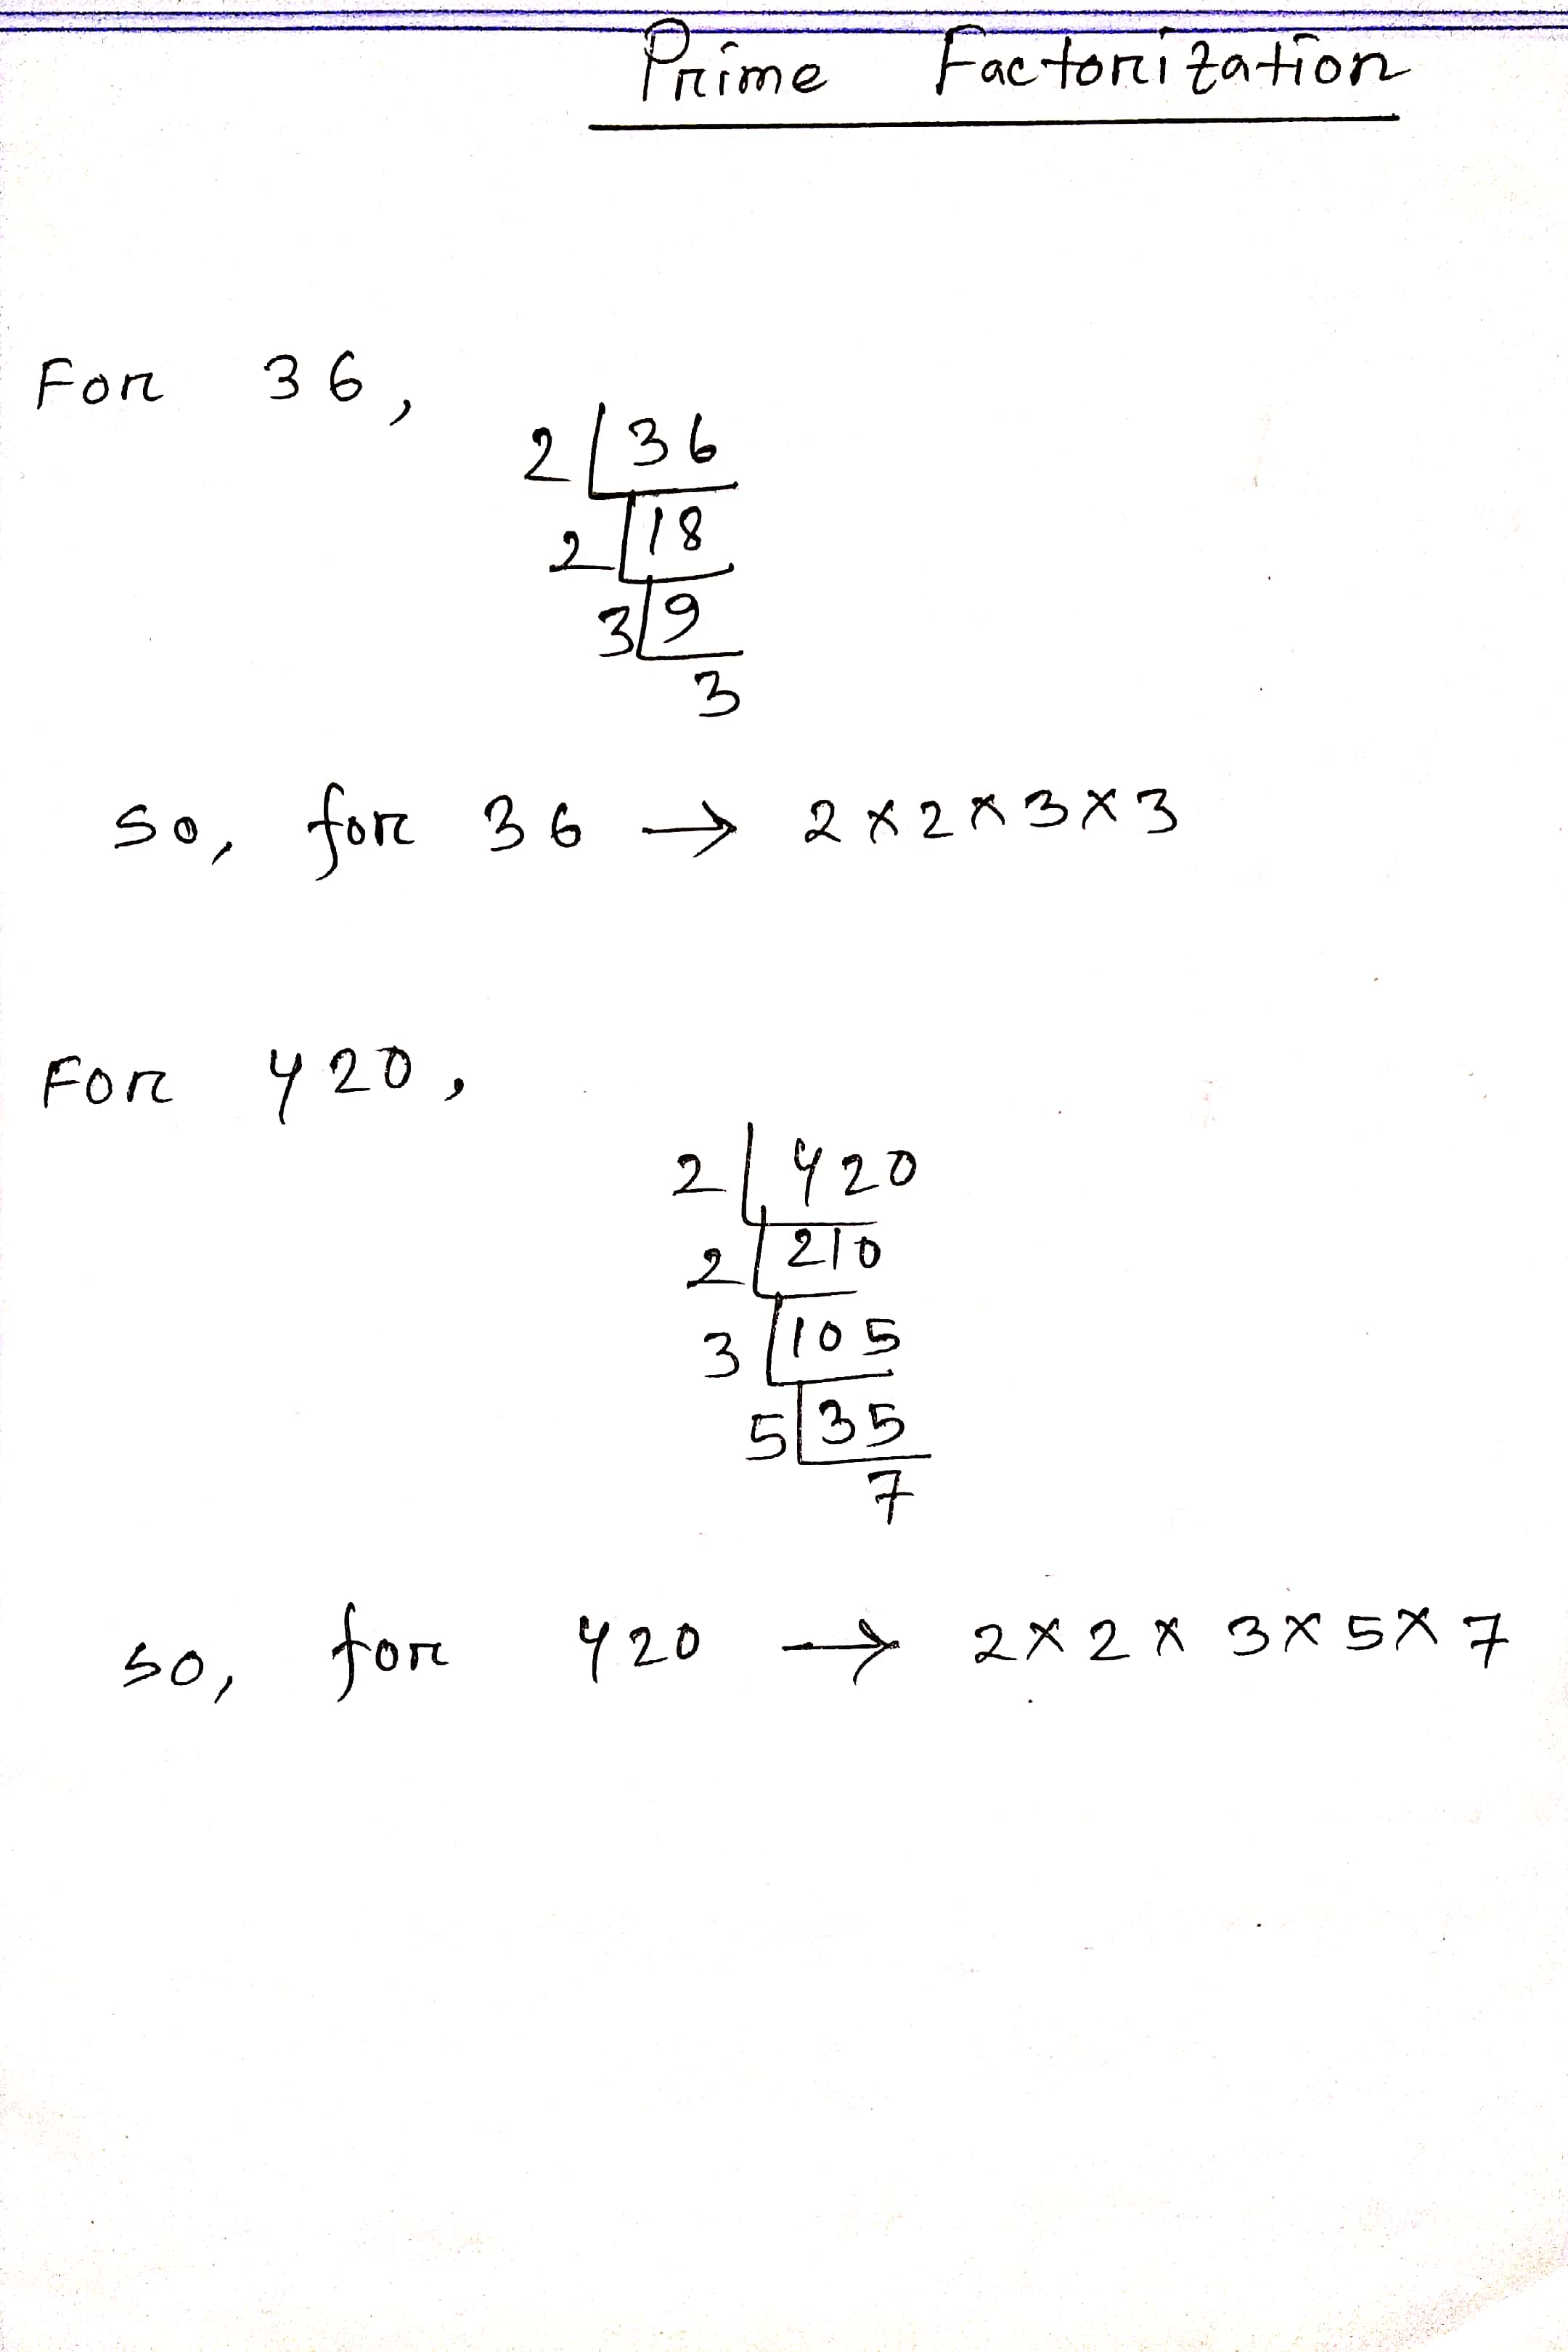 Prime Factorization
For 36,
2 36
2 18
3 9
3
so, for 36 → 2 × 2 × 3 × 3
For 420,
2 420
2 210
3 105
5 35
7
so, for 420 → 2 × 2 × 3 × 5 × 7